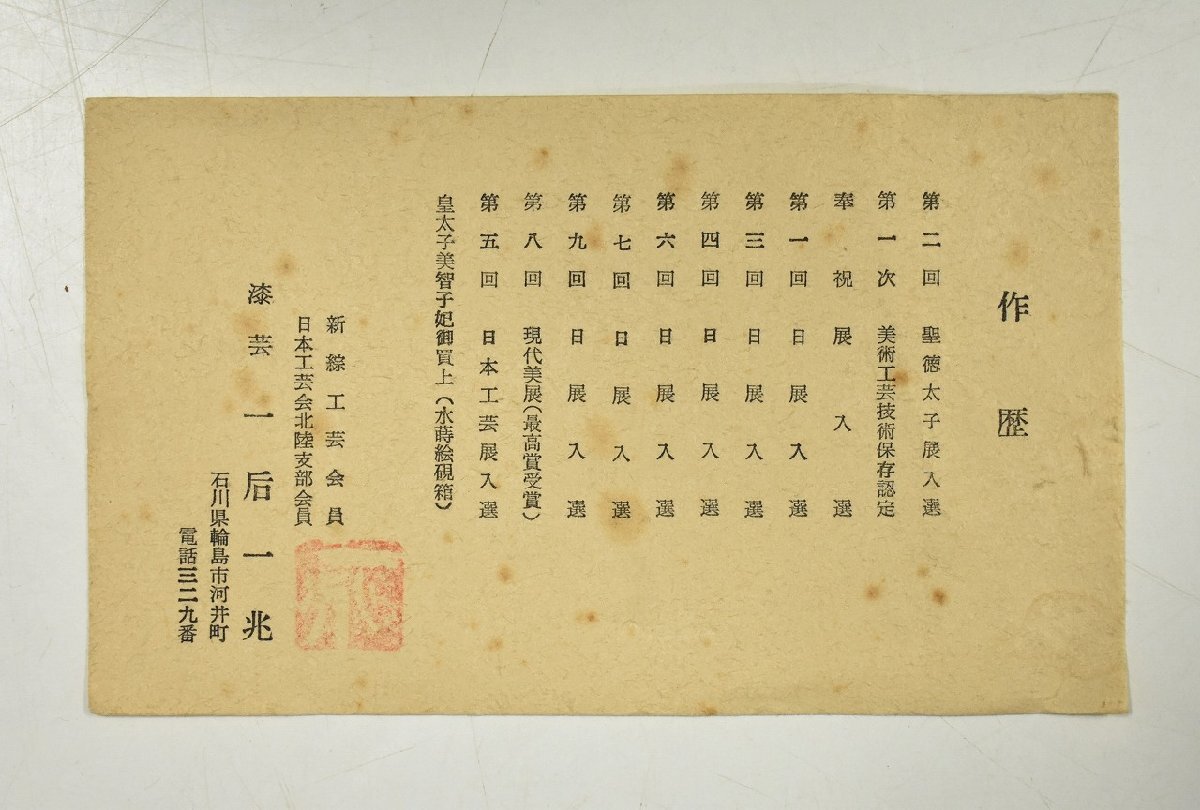 作歴
第二回 聖徳太子展入選
第一次 美術工芸技術保存認定
奉祝展入選
第一回 日展入選
第三回 日展入選
第四回 日展入選
第六回 日展入選
第七回 日展入選
第九回 日展入選
第八回 現代美展(最高賞受賞)
第五回 日本工芸展入選
皇太子美智子妃御買上(水蒔絵硯箱)
新綜工芸会員
日本工芸会北陸支部会員
漆芸 一后一兆
石川県輪島市河井町
電話三二九番